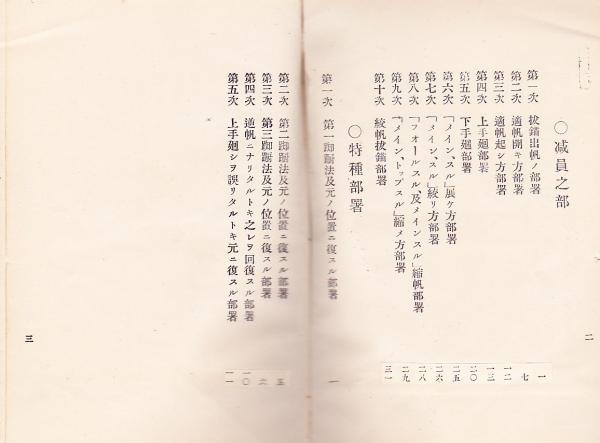 ○減員之部
第一次 抜錨出帆ノ部署 一
第二次 適帆開キ方部署 七
第三次 適帆起シ方部署 一二
第四次 上手廻部署 一三
第五次 下手廻部署 二〇
第六次 「メイン、スル」展ケ方部署 二五
第七次 「メイン、スル」絞リ方部署 二六
第八次 「フォールスル、及メインスル」縮帆部署 二八
第九次 「メイン、トップスル」縮メ方部署 二九
第十次 絞帆抜錨部署 三一
○特種部署
第一次 第一踟蹰法及元ノ位置ニ復スル部署 一
二
第二次 第二踟蹰法及元ノ位置ニ復スル部署 五
第三次 第三踟蹰法及元ノ位置ニ復スル部署 六
第四次 逆帆ニナリタルトキ之レヲ回復スル部署 一〇
第五次 上手廻シヲ誤リタルトキ元ニ復スル部署 一一
三